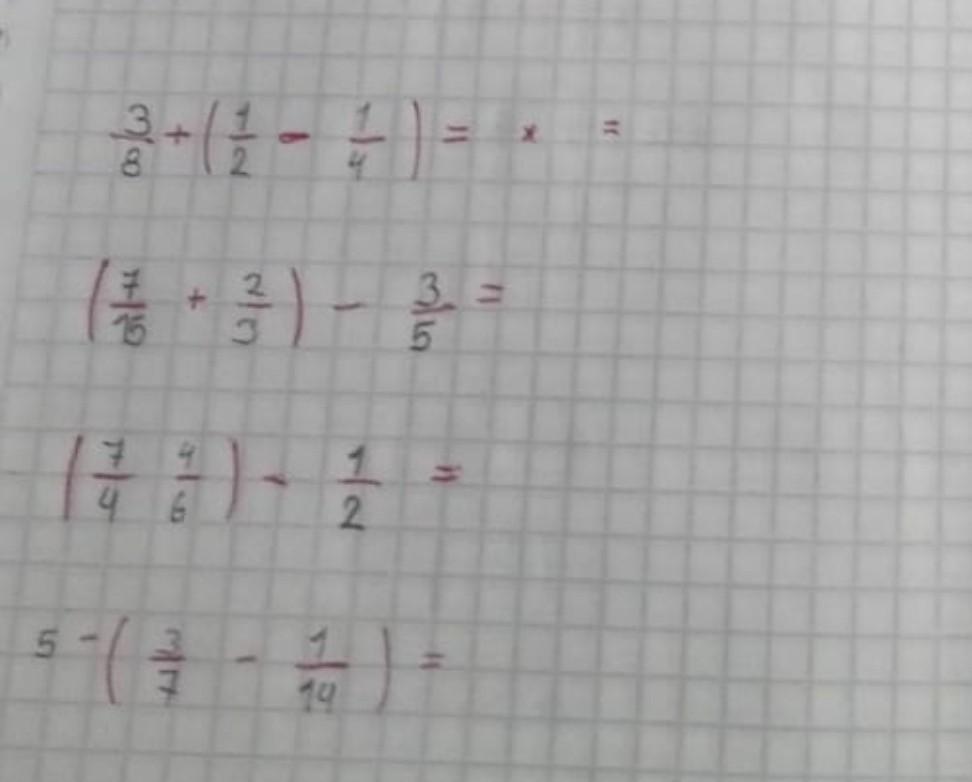 3/8 + (1/2 - 1/4) = × =
(7/15 + 2/3) - 3/5 =
(7/4 4/6) - 1/2 =
5 - (3/7 - 1/14) =